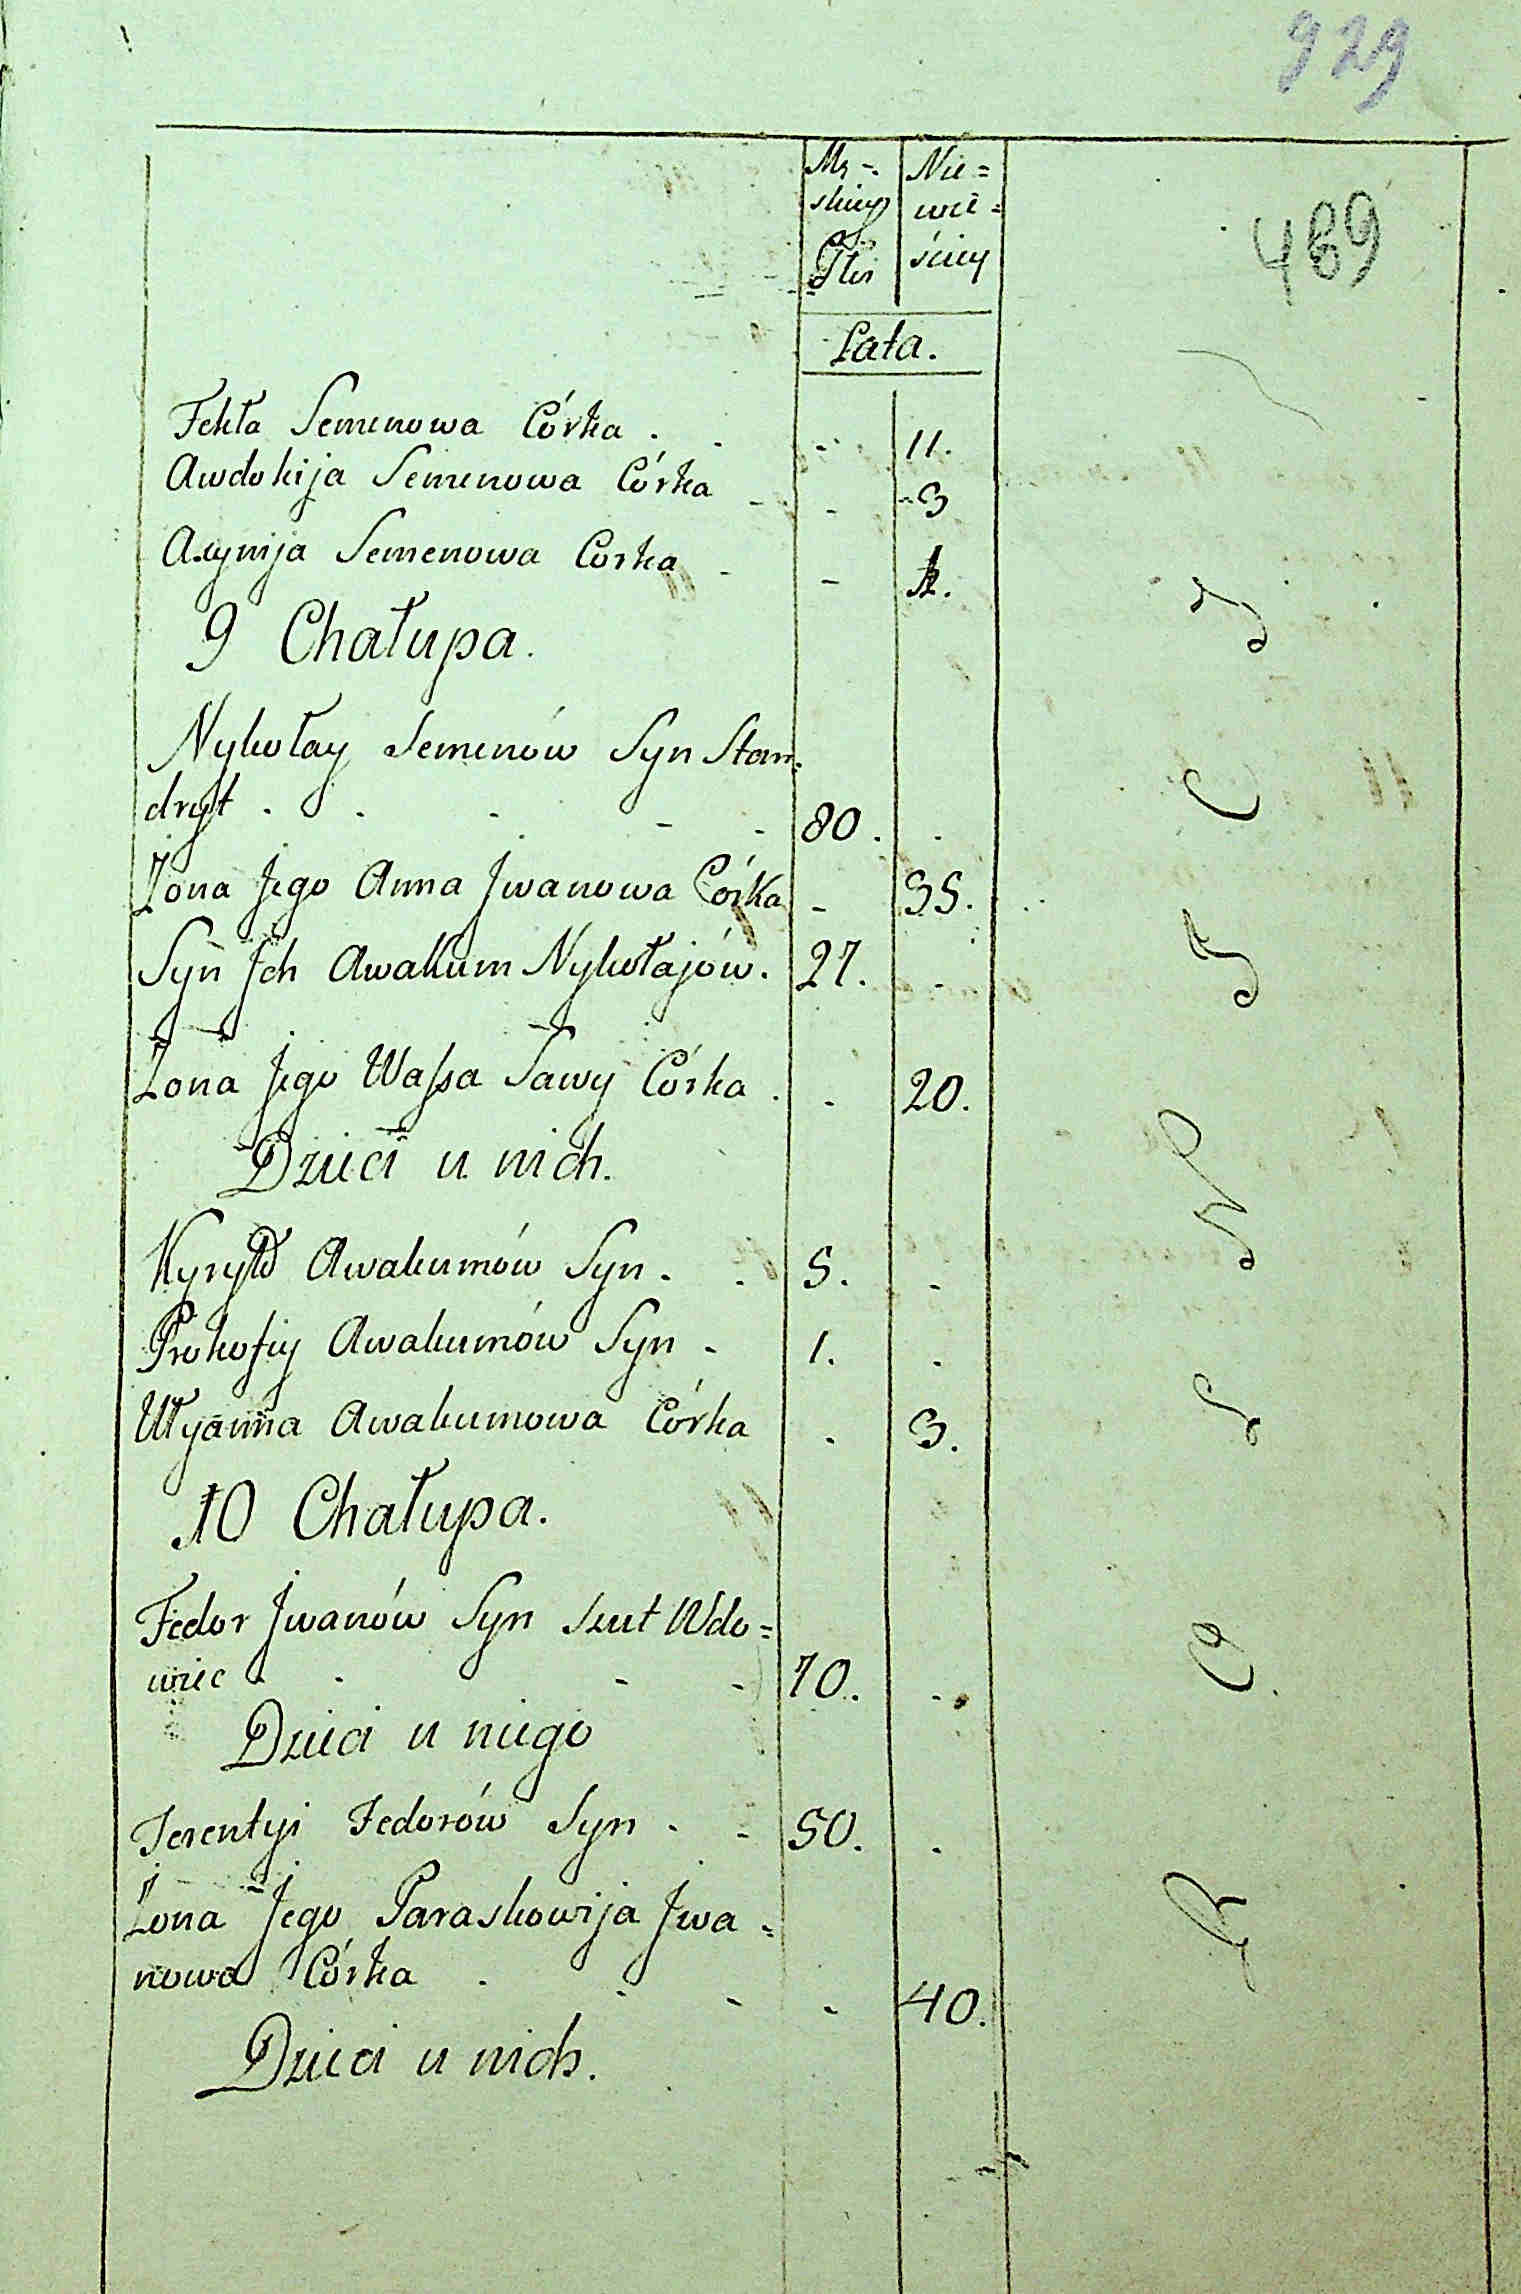 929
Mę-
skiey
Płci
Nie=
wie=
ściey
469
Lata.
Fekła Semenowa Córka . . - 11.
Awdokija Semenowa Córka - - 3
Axynija Semenowa Corka - -
9 Chałupa.
Nykołay Semenów Syn Stan=
dryt . . . - - 80. .
Żona Jego Anna Jwanowa Córka - 35.
Syn Jch Awakum Nykołajów. 27. .
Żona Jego Waſsa Sawy Córka . . 20.
Dzieci u nich.
Kyryło Awakumów Syn . . 5. .
Prokofiy Awakumów Syn - 1. .
Ułyanna Awakumowa Córka . 3.
10 Chałupa.
Fedor Jwanów Syn Szut Wdo=
wiec - - - - 70. .
Dzieci u niego
Terentyi Fedorów Syn . - 50. .
Żona Jego Paraskowija Jwa=
nowa Córka . - - - 40.
Dzieci u nich.